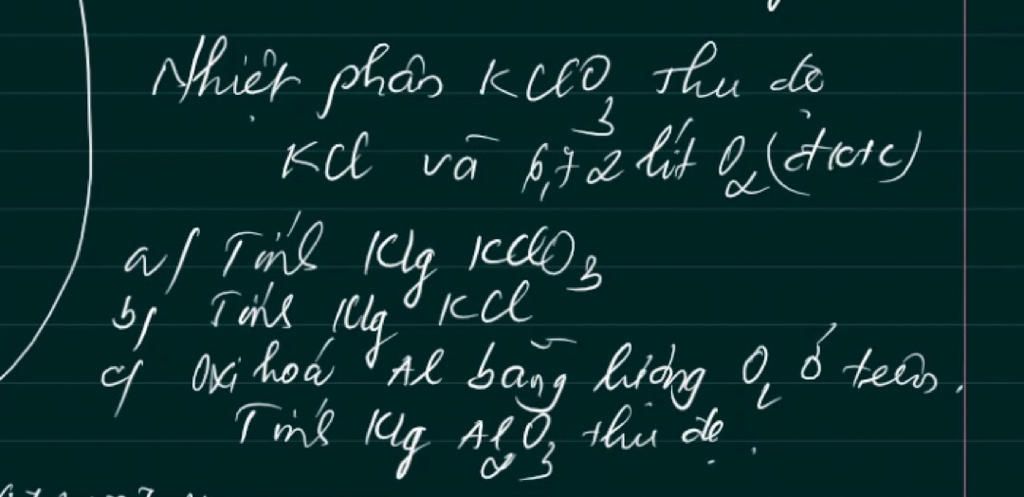 Nhiệt phân KClO3 thu đc
KCl và 6,72 lít O2 (đktc)
a/ Tính Klg KClO3
b/ Tính Klg KCl
c/ Oxi hoá Al bằng lượng O2 ở trên.
Tính Klg Al2O3 thu đc.